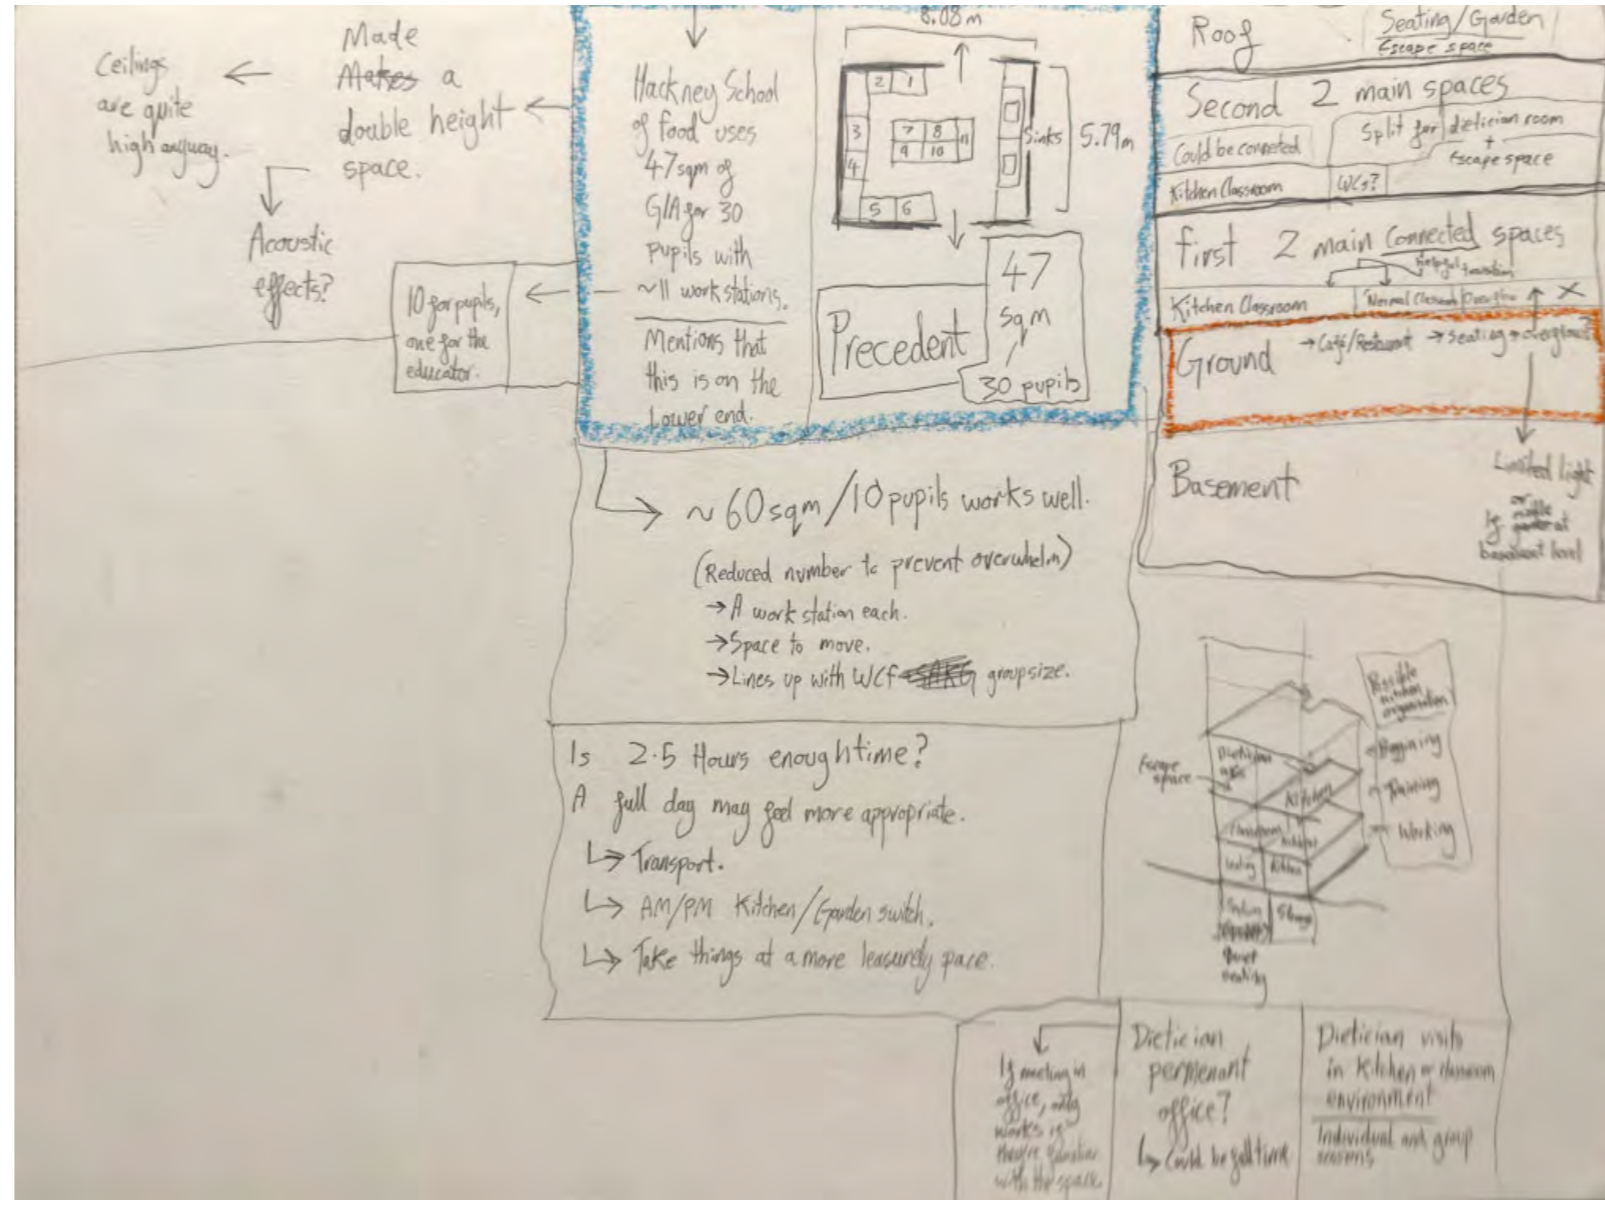 Ceilings
are quite
high anyway.
Made
Makes a
double height
space.
Acoustic
effects?
Hackney School
of food uses
47sqm of
GIA for 30
pupils with
~11 workstations.
Mentions that
this is on the
Lower end.
10 for pupils,
one for the
educator.
8.08m
2 1
3
4
7 8 11
9 10
5 6
Sinks
5.79m
Precedent
47
sqm
30 pupils
Roof
Seating/Garden
Escape space
Second 2 main spaces
Could be connected
Split for dietician room
+
Escape space
Kitchen Classroom
WCs?
first 2 main Connected spaces
helpful transition
Kitchen Classroom
Normal Classroom
Overflow
X
Ground → Café/Restaurant → Seating → overflow?
Basement
Limited light
or
if
at
basement level
~ 60sqm/10 pupils works well.
(Reduced number to prevent overwhelm)
→ A work station each.
→ Space to move.
→ Lines up with WCF groupsize.
Is 2.5 Hours enough time?
A full day may feel more appropriate.
↳ Transport.
↳ AM/PM Kitchen/Garden switch.
↳ Take things at a more leasurely pace.
Possible
kitchen
organisation
Beggining
Training
Working
Escape
space
Dietician
Kitchen
Classroom
Kitchen
Seating
Kitchen
Storage
Quiet
seating
If meeting in
office, only
works if
they're familiar
with the space.
Dietician
permenant
office?
↳ Could be full time
Dietician visits
in Kitchen or classroom
environment
Individual and group
sessions